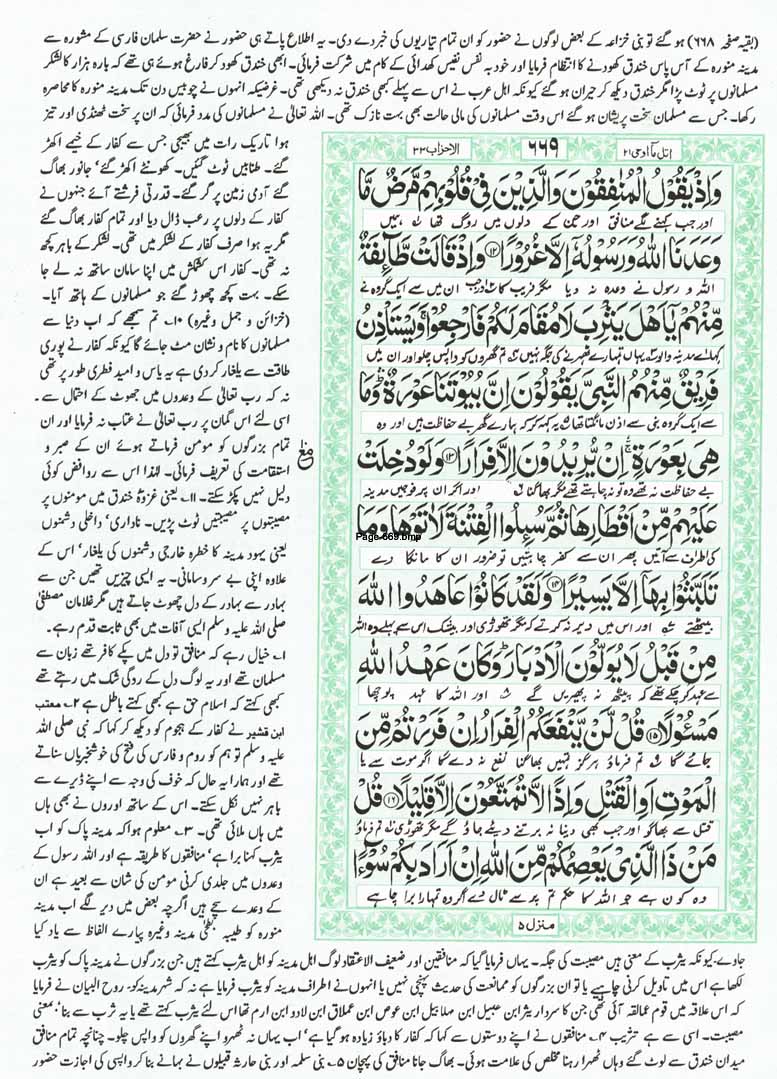 (بقیہ صفحہ ۶۶۸) ہو گئے تو بنی خزاعہ کے بعض لوگوں نے حضور کو ان تمام تیاریوں کی خبر دے دی۔ یہ اطلاع پاتے ہی حضور نے حضرت سلمان فارسی کے مشورہ سے
مدینہ منورہ کے آس پاس خندق کھودنے کا انتظام فرمایا اور خود بہ نفس نفیس کھدائی کے کام میں شرکت فرمائی۔ ابھی خندق کھود کر فارغ ہوئے ہی تھے کہ بارہ ہزار کا لشکر
مسلمانوں پر ٹوٹ پڑا مگر خندق دیکھ کر حیران ہو گئے کیونکہ اہل عرب نے اس سے پہلے کبھی خندق نہ دیکھی تھی۔ غرضیکہ انہوں نے چوبیس دن تک مدینہ منورہ کا محاصرہ
رکھا۔ جس سے مسلمان سخت پریشان ہو گئے اس وقت مسلمانوں کی مالی حالت بھی بہت نازک تھی۔ اللہ تعالیٰ نے مسلمانوں کی مدد فرمائی کہ ان پر سخت ٹھنڈی اور تیز
اتل ما اوحی ۲۱
۶۶۹
الاحزاب ۳۳
وَاِذْ يَقُوْلُ الْمُنٰفِقُوْنَ وَالَّذِيْنَ فِيْ قُلُوْبِهِمْ مَّرَضٌ مَّا
اور جب کہنے لگے منافق اور جن کے دلوں میں روگ تھا ہمیں
وَعَدَنَا اللّٰهُ وَرَسُوْلُهٗٓ اِلَّا غُرُوْرًا ﴿۱۲﴾ وَاِذْ قَالَتْ طَّآئِفَةٌ
اللہ و رسول نے وعدہ نہ دیا مگر فریب کا اور جب ان میں سے ایک گروہ نے
مِّنْهُمْ يٰٓاَهْلَ يَثْرِبَ لَا مُقَامَ لَكُمْ فَارْجِعُوْا ۚ وَيَسْتَاْذِنُ
کہا اے مدینہ والو یہاں تمہارے ٹھہرنے کی جگہ نہیں تم گھروں کو واپس چلو اور ان میں
فَرِيْقٌ مِّنْهُمُ النَّبِيَّ يَقُوْلُوْنَ اِنَّ بُيُوْتَنَا عَوْرَةٌ ۛ وَمَا
سے ایک گروہ نبی سے اذن مانگتا تھا یہ کہہ کر کہ ہمارے گھر بے حفاظت ہیں اور وہ
هِيَ بِعَوْرَةٍ ۛ اِنْ يُّرِيْدُوْنَ اِلَّا فِرَارًا ﴿۱۳﴾ وَلَوْ دُخِلَتْ
بے حفاظت نہ تھے وہ تو نہ چاہتے تھے مگر بھاگنا اور اگر ان پر فوجیں مدینہ
عَلَيْهِمْ مِّنْ اَقْطَارِهَا ثُمَّ سُىِٕلُوا الْفِتْنَةَ لَاٰتَوْهَا وَمَا
کی اطراف سے آتیں پھر ان سے کفر چاہتیں تو ضرور ان کا مانگا دے
Page 669.bmp
تَلَبَّثُوْا بِهَآ اِلَّا يَسِيْرًا ﴿۱۴﴾ وَلَقَدْ كَانُوْا عَاهَدُوا اللّٰهَ
بیٹھتے اور اس میں دیر نہ کرتے مگر تھوڑی اور بیشک اس سے پہلے وہ اللہ
مِنْ قَبْلُ لَا يُوَلُّوْنَ الْاَدْبَارَ ۭ وَكَانَ عَهْدُ اللّٰهِ
سے عہد کر چکے تھے کہ پیٹھ نہ پھیریں گے اور اللہ کا عہد پوچھا
مَسْـُٔوْلًا ﴿۱۵﴾ قُلْ لَّنْ يَّنْفَعَكُمُ الْفِرَارُ اِنْ فَرَرْتُمْ مِّنَ
جائے گا تم فرماؤ ہرگز تمہیں بھاگنا نفع نہ دے گا اگر موت سے یا
الْمَوْتِ اَوِ الْقَتْلِ وَاِذًا لَّا تُمَتَّعُوْنَ اِلَّا قَلِيْلًا ﴿۱۶﴾ قُلْ
قتل سے بھاگو اور جب بھی دنیا نہ برتنے دیئے جاؤ گے مگر تھوڑی تم فرماؤ
مَنْ ذَا الَّذِيْ يَعْصِمُكُمْ مِّنَ اللّٰهِ اِنْ اَرَادَ بِكُمْ سُوْٓءًا
وہ کون ہے جو اللہ کا حکم تم پر سے ٹال دے اگر وہ تمہارا برا چاہے
منزل ۵
ہوا تاریک رات میں بھیجی جس سے کفار کے خیمے اکھڑ
گئے۔ طنابیں ٹوٹ گئیں۔ کھونٹے اکھڑ گئے، جانور بھاگ
گئے آدمی زمین پر گر گئے۔ قدرتی فرشتے آئے جنہوں نے
کفار کے دلوں پر رعب ڈال دیا اور تمام کفار بھاگ گئے
مگر یہ ہوا صرف کفار کے لشکر میں تھی۔ لشکر کے باہر کچھ
نہ تھی۔ کفار اس کشمکش میں اپنا سامان ساتھ نہ لے جا
سکے۔ بہت کچھ چھوڑ گئے جو مسلمانوں کے ہاتھ آیا۔
(خزائن و جمل وغیرہ) ۱۰۔ تم سمجھے کہ اب دنیا سے
مسلمانوں کا نام و نشان مٹ جائے گا کیونکہ کفار نے پوری
طاقت سے یلغار کر دی ہے یہ یاس و امید فطری طور پر تھی
نہ کہ رب تعالیٰ کے وعدوں میں جھوٹ کے احتمال سے۔
اسی لئے اس گمان پر رب تعالیٰ نے عتاب نہ فرمایا اور ان
تمام بزرگوں کو مومن فرماتے ہوئے ان کے صبر و
استقامت کی تعریف فرمائی۔ لہٰذا اس سے روافض کوئی
دلیل نہیں پکڑ سکتے۔ ۱۱۔ یعنی غزوۂ خندق میں مومنوں پر
مصیبتوں پر مصیبتیں ٹوٹ پڑیں۔ ناداری، داخلی دشمنوں
یعنی یہود مدینہ کا خطرہ خارجی دشمنوں کی یلغار، اس کے
علاوہ اپنی بے سروسامانی۔ یہ ایسی چیزیں تھیں جن سے
بہادر سے بہادر کے دل چھوٹ جاتے ہیں مگر غلامان مصطفیٰ
صلی اللہ علیہ وسلم ایسی آفات میں بھی ثابت قدم رہے۔
۱۔ خیال رہے کہ منافق تو دل میں پکے کافر تھے زبان سے
مسلمان تھے اور یہ لوگ دل کے روگی شک میں رہتے تھے
کبھی کہتے کہ اسلام حق ہے کبھی کہتے باطل ہے ۲۔ معتب
ابن قشیر نے کفار کے ہجوم کو دیکھ کر کہا کہ نبی صلی اللہ
علیہ وسلم تو ہم کو روم و فارس کی فتح کی خوشخبریاں سناتے
تھے اور ہمارا یہ حال کہ خوف کی وجہ سے اپنے ڈیرے سے
باہر نہیں نکل سکتے۔ اس کے ساتھ اوروں نے بھی ہاں
میں ہاں ملائی تھی۔ ۳۔ معلوم ہوا کہ مدینہ پاک کو اب
یثرب کہنا برا ہے، منافقوں کا طریقہ ہے اور اللہ رسول کے
وعدوں میں جلدی کرنی مومن کی شان سے بعید ہے ان
کے وعدے سچے ہیں اگرچہ بعض میں دیر لگے اب مدینہ
منورہ کو طیبہ بطحیٰ مدینہ وغیرہ پیارے الفاظ سے یاد کیا
جاوے۔ کیونکہ یثرب کے معنی ہیں مصیبت کی جگہ۔ یہاں فرمایا گیا کہ منافقین اور ضعیف الاعتقاد لوگ اہل مدینہ کو اہل یثرب کہتے ہیں جن بزرگوں نے مدینہ پاک کو یثرب
لکھا ہے اس میں تاویل کرنی چاہیے یا تو ان بزرگوں کو ممانعت کی حدیث پہنچی نہیں یا انہوں نے اطراف مدینہ کو یثرب فرمایا ہے نہ کہ شہر مدینہ کو۔ روح البیان نے فرمایا
کہ اس علاقہ میں قوم عمالقہ آئی تھی جن کا سردار یثرب ابن عبیل ابن مہلائیل ابن عوص ابن عملاق ابن لاود ابن ارم تھا اس لئے یثرب کہتے تھے یا یہ ثرب سے بنا، بمعنی
مصیبت۔ اسی سے ہے تثریب ۴۔ منافقوں نے اپنے دوستوں سے کہا کہ کفار کا دباؤ زیادہ ہو گیا ہے، اب یہاں نہ ٹھہرو اپنے گھروں کو واپس چلو۔ چنانچہ تمام منافق
میدان خندق سے لوٹ گئے وہاں ٹھہرا رہنا مخلص کی علامت ہوئی۔ بھاگ جانا منافق کی پہچان ۵۔ بنی سلمہ اور بنی حارثہ قبیلوں نے بہانے بنا کر واپسی کی اجازت حضور